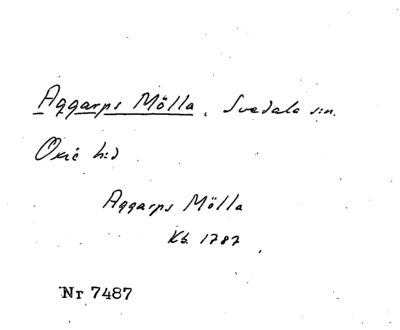 Aggarps Mölla, Svedala s:n.
Oxie h:d
Aggarps Mölla
Kb. 1787
Nr 7487